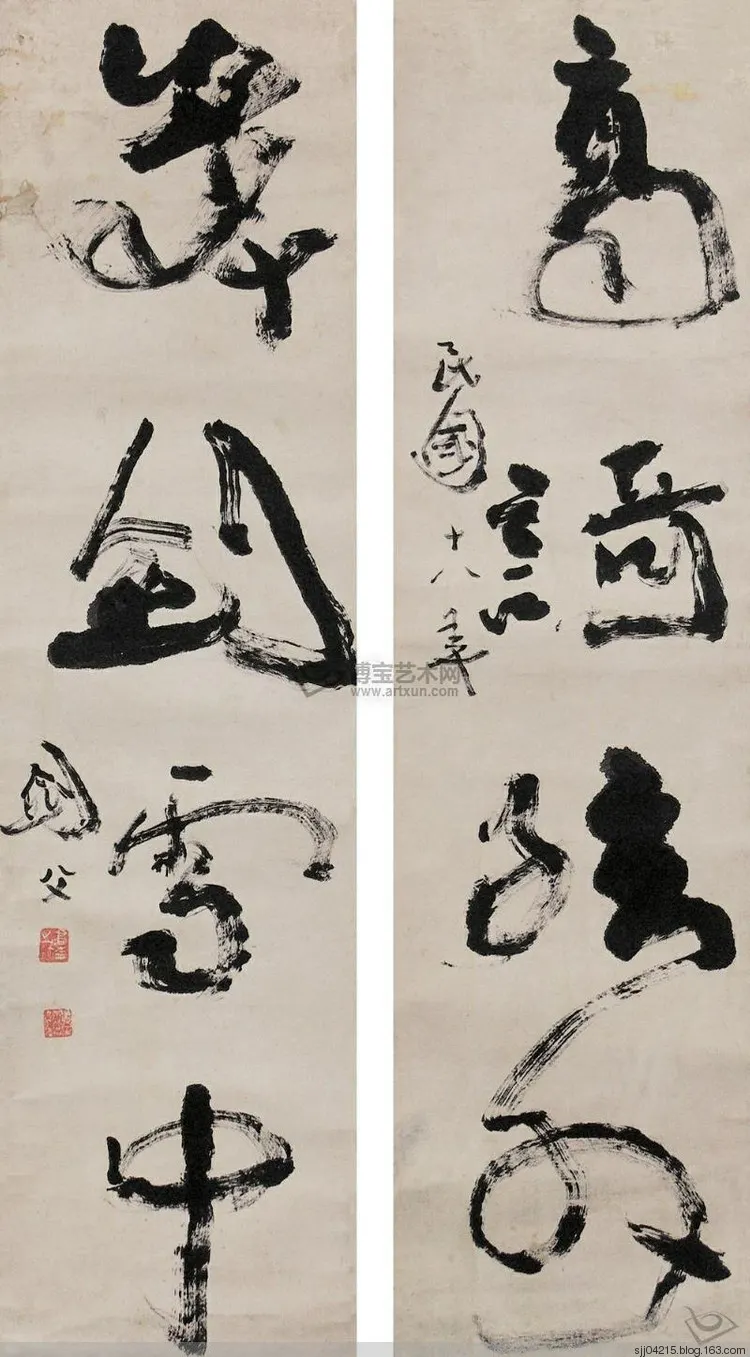 高謌
民國十八年
舞劍雪中
劍父
博宝艺术网
www.artxun.com
sjj04215.blog.163.com